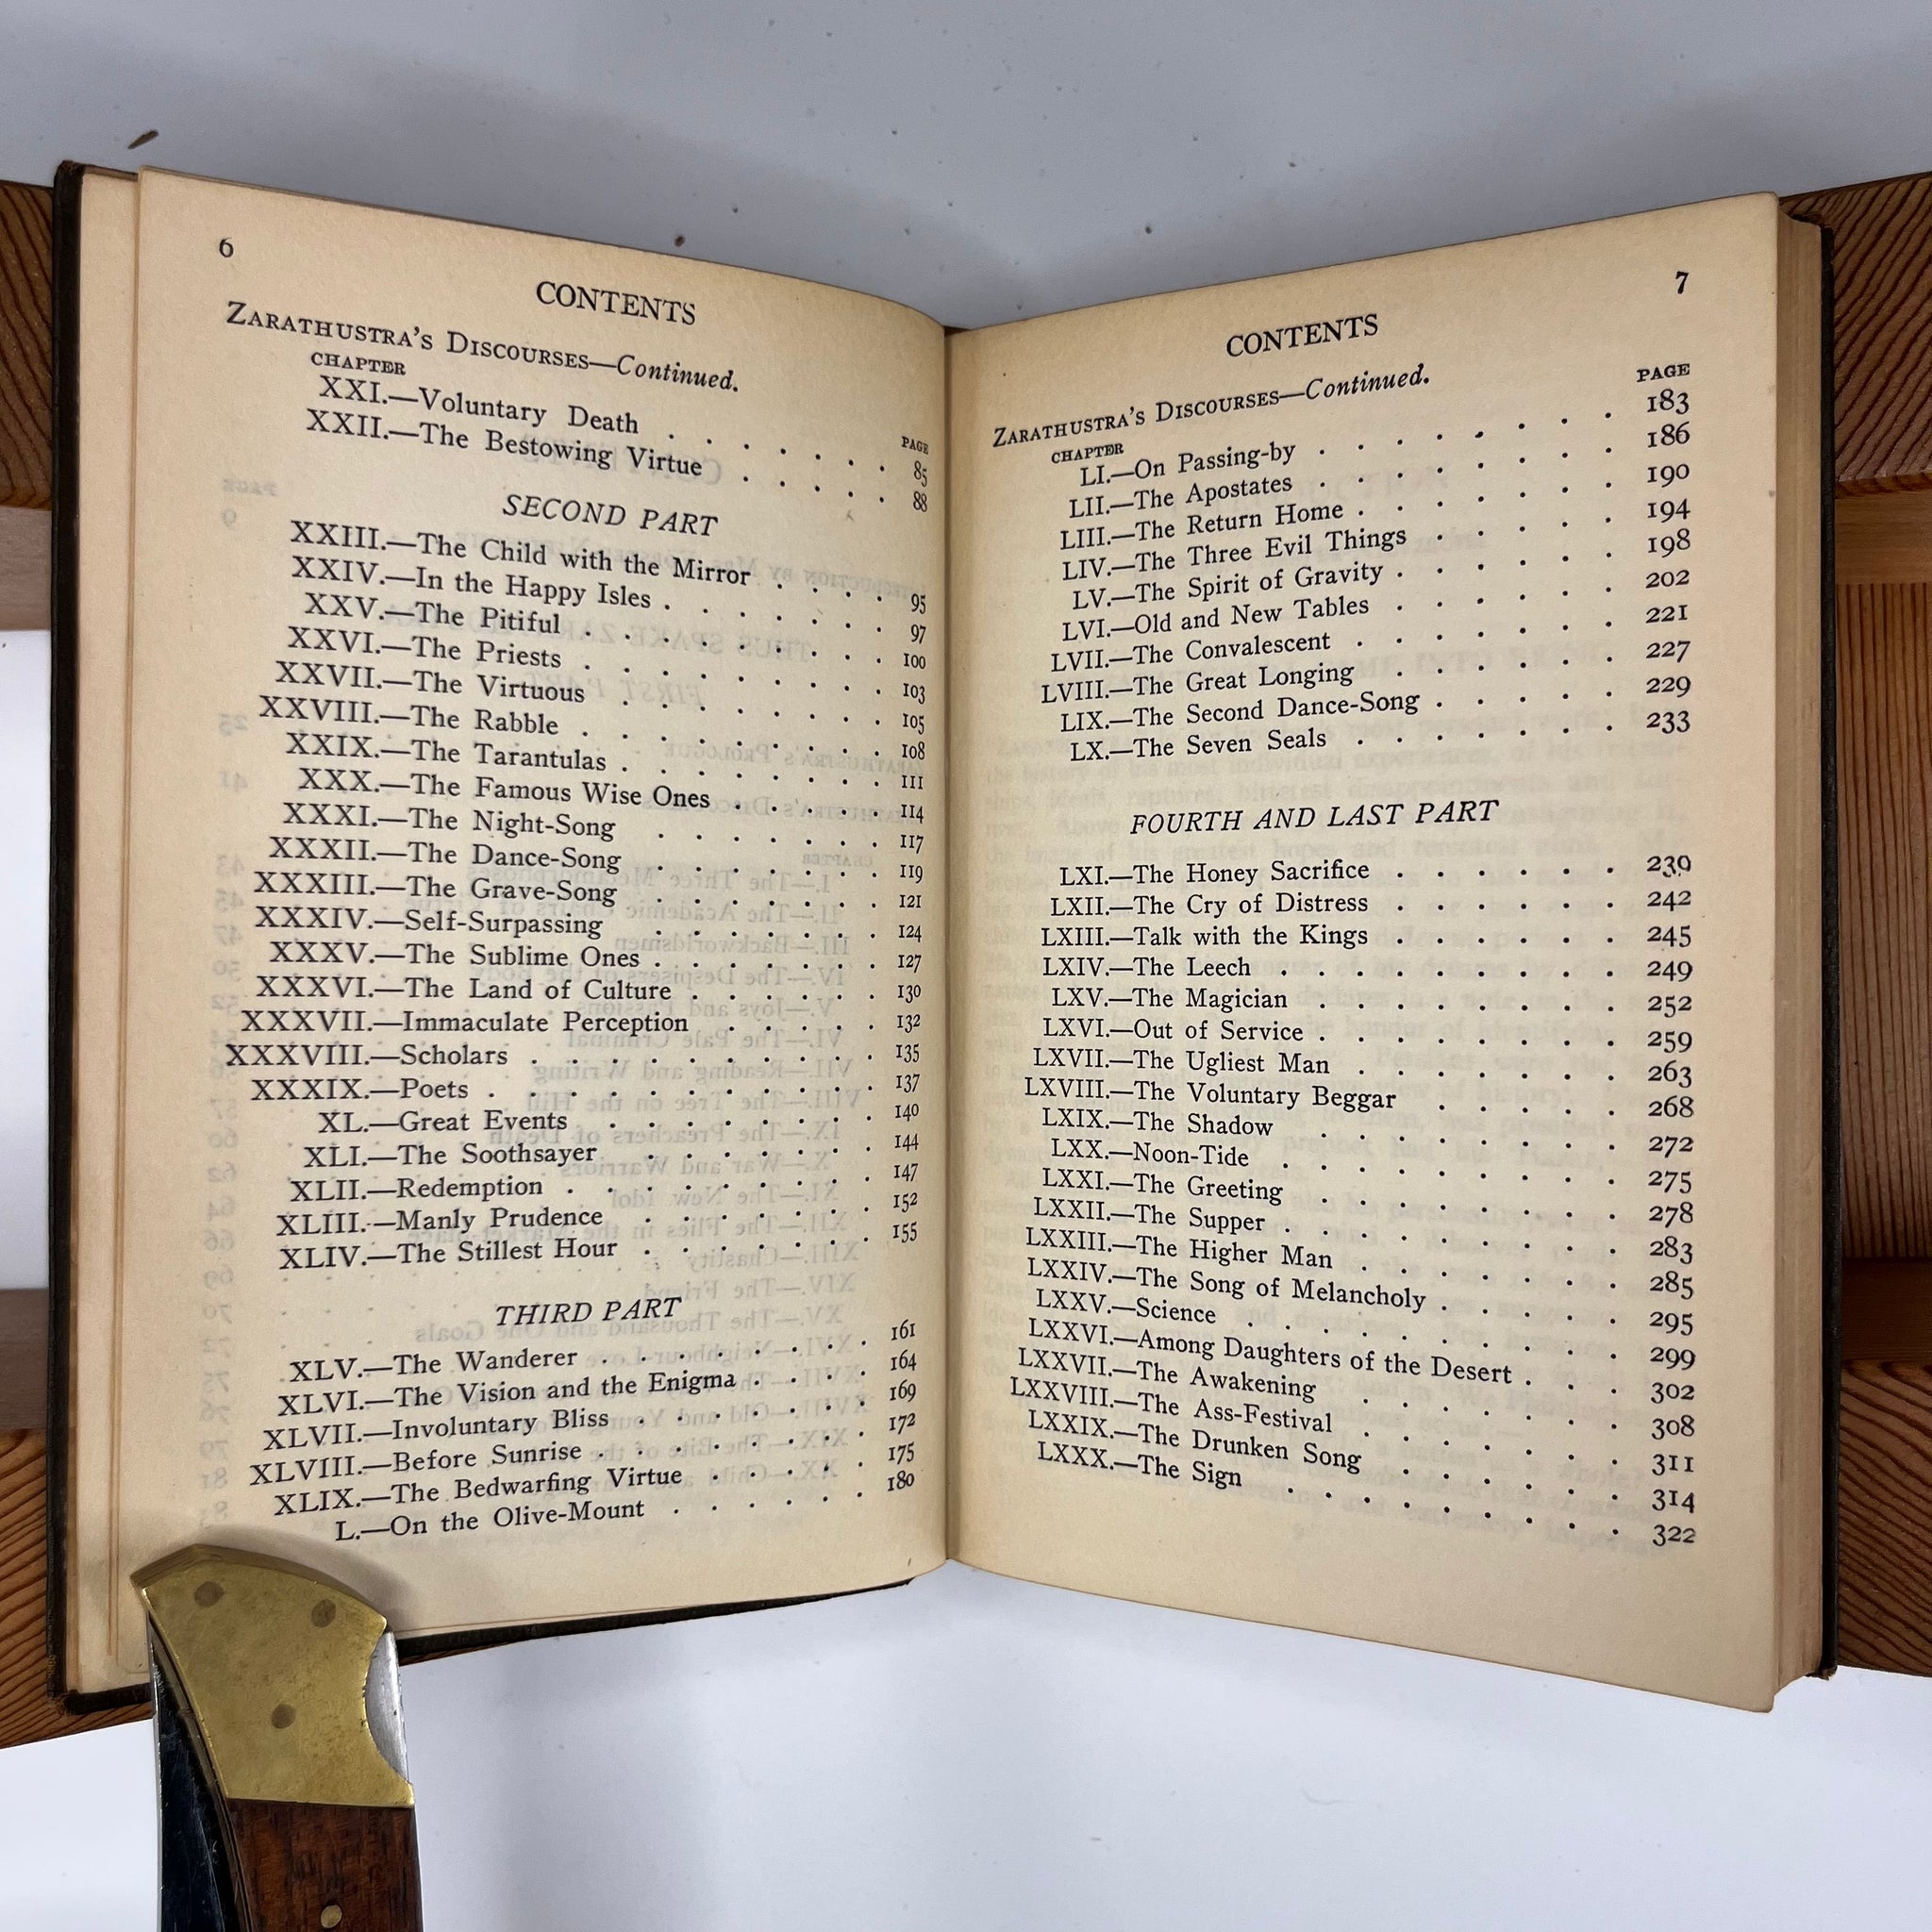 6
CONTENTS
ZARATHUSTRA'S DISCOURSES—Continued.
CHAPTER PAGE
XXI.—Voluntary Death . . . . . . 85
XXII.—The Bestowing Virtue . . . . . 88
SECOND PART
XXIII.—The Child with the Mirror . . . . 95
XXIV.—In the Happy Isles . . . . . . 97
XXV.—The Pitiful . . . . . . . . 100
XXVI.—The Priests . . . . . . . . 103
XXVII.—The Virtuous . . . . . . . 105
XXVIII.—The Rabble . . . . . . . . 108
XXIX.—The Tarantulas . . . . . . . 111
XXX.—The Famous Wise Ones . . . . 114
XXXI.—The Night-Song . . . . . . 117
XXXII.—The Dance-Song . . . . . . 119
XXXIII.—The Grave-Song . . . . . . 121
XXXIV.—Self-Surpassing . . . . . . 124
XXXV.—The Sublime Ones . . . . . . 127
XXXVI.—The Land of Culture . . . . . 130
XXXVII.—Immaculate Perception . . . . 132
XXXVIII.—Scholars . . . . . . . . . 135
XXXIX.—Poets . . . . . . . . . . 137
XL.—Great Events . . . . . . . 140
XLI.—The Soothsayer . . . . . . 144
XLII.—Redemption . . . . . . . . 147
XLIII.—Manly Prudence . . . . . . 152
XLIV.—The Stillest Hour . . . . . . 155
THIRD PART
XLV.—The Wanderer . . . . . . . 161
XLVI.—The Vision and the Enigma . . . 164
XLVII.—Involuntary Bliss . . . . . . 169
XLVIII.—Before Sunrise . . . . . . . 172
XLIX.—The Bedwarfing Virtue . . . . 175
L.—On the Olive-Mount . . . . . 180
7
CONTENTS
ZARATHUSTRA'S DISCOURSES—Continued.
CHAPTER PAGE
LI.—On Passing-by . . . . . . . . 183
LII.—The Apostates . . . . . . . . 186
LIII.—The Return Home . . . . . . . 190
LIV.—The Three Evil Things . . . . . 194
LV.—The Spirit of Gravity . . . . . . 198
LVI.—Old and New Tables . . . . . . 202
LVII.—The Convalescent . . . . . . . 221
LVIII.—The Great Longing . . . . . . 227
LIX.—The Second Dance-Song . . . . . 229
LX.—The Seven Seals . . . . . . . 233
FOURTH AND LAST PART
LXI.—The Honey Sacrifice . . . . . . 239
LXII.—The Cry of Distress . . . . . . 242
LXIII.—Talk with the Kings . . . . . . 245
LXIV.—The Leech . . . . . . . . . 249
LXV.—The Magician . . . . . . . . 252
LXVI.—Out of Service . . . . . . . . 259
LXVII.—The Ugliest Man . . . . . . . 263
LXVIII.—The Voluntary Beggar . . . . . 268
LXIX.—The Shadow . . . . . . . . 272
LXX.—Noon-Tide . . . . . . . . . 275
LXXI.—The Greeting . . . . . . . . 278
LXXII.—The Supper . . . . . . . . . 283
LXXIII.—The Higher Man . . . . . . . 285
LXXIV.—The Song of Melancholy . . . . . 295
LXXV.—Science . . . . . . . . . 299
LXXVI.—Among Daughters of the Desert . . . 302
LXXVII.—The Awakening . . . . . . . 308
LXXVIII.—The Ass-Festival . . . . . . . 311
LXXIX.—The Drunken Song . . . . . . 314
LXXX.—The Sign . . . . . . . . . 322